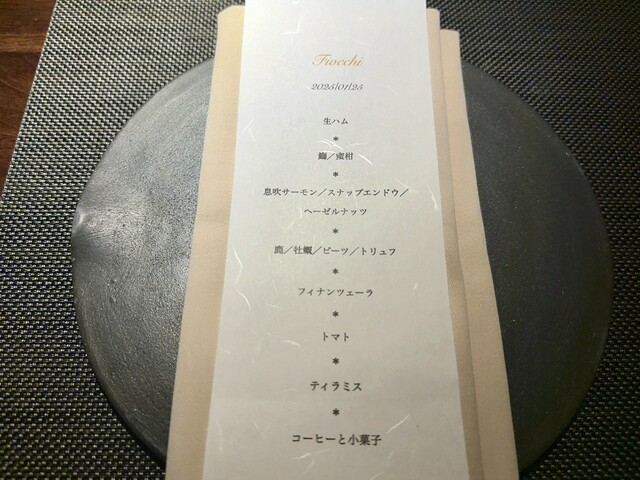 Fiocchi
2025/01/25
生ハム
*
鰤／蜜柑
*
息吹サーモン／スナップエンドウ／
ヘーゼルナッツ
*
鹿／牡蠣／ビーツ／トリュフ
*
フィナンツェーラ
*
トマト
*
ティラミス
*
コーヒーと小菓子